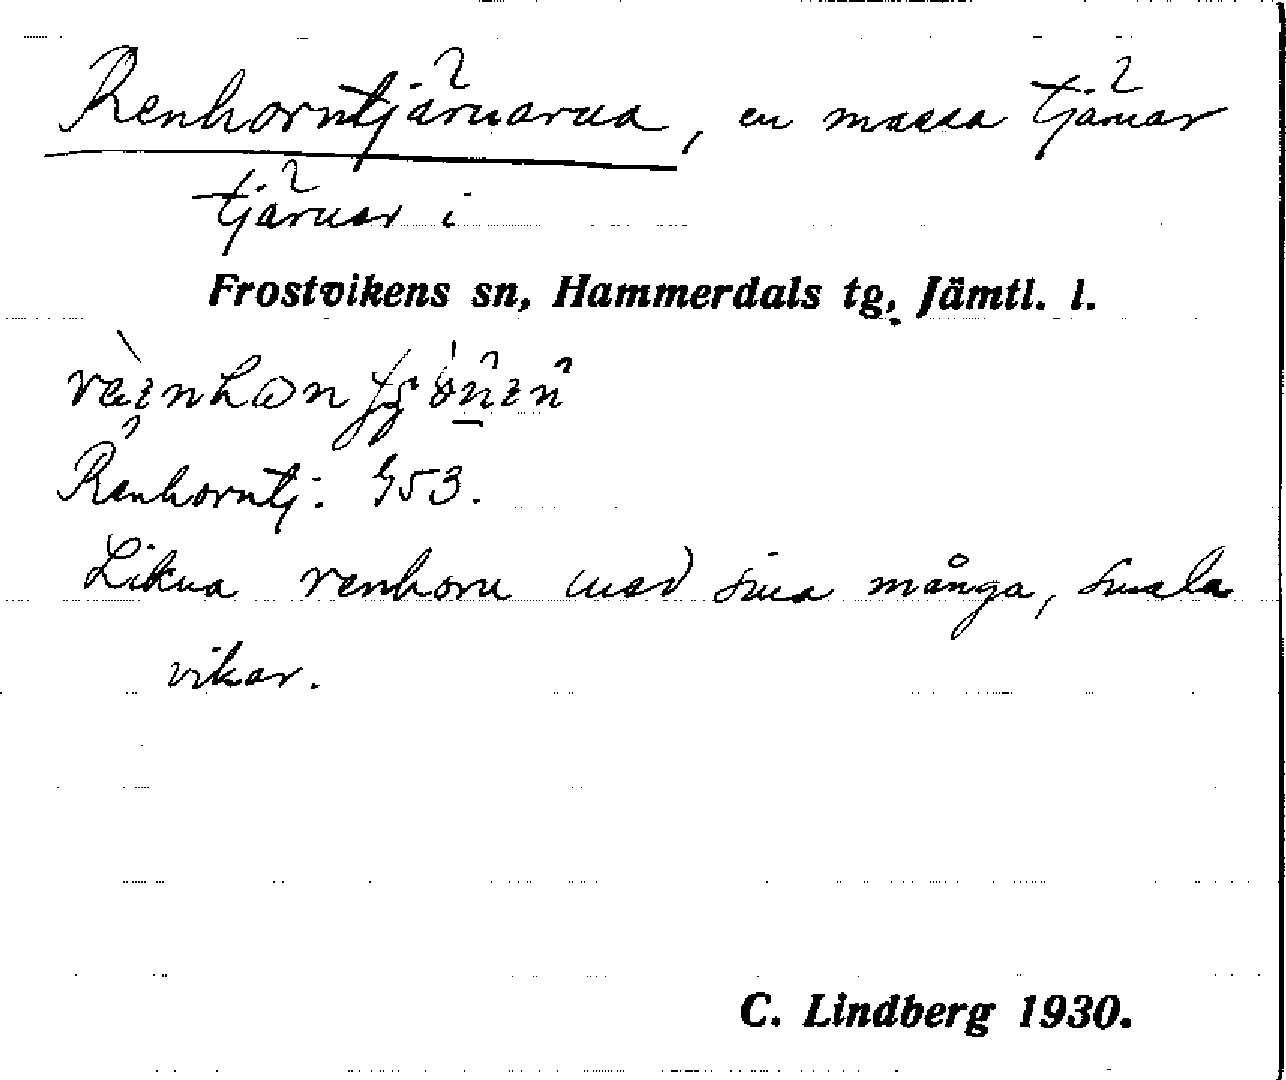 Renhorntjärnarna, en massa tjärnar
tjärnar i
Frostvikens sn, Hammerdals tg, Jämtl. l.
Renhorntj: 953.
Likna renhorn med sina många, smala
vikar.
C. Lindberg 1930.